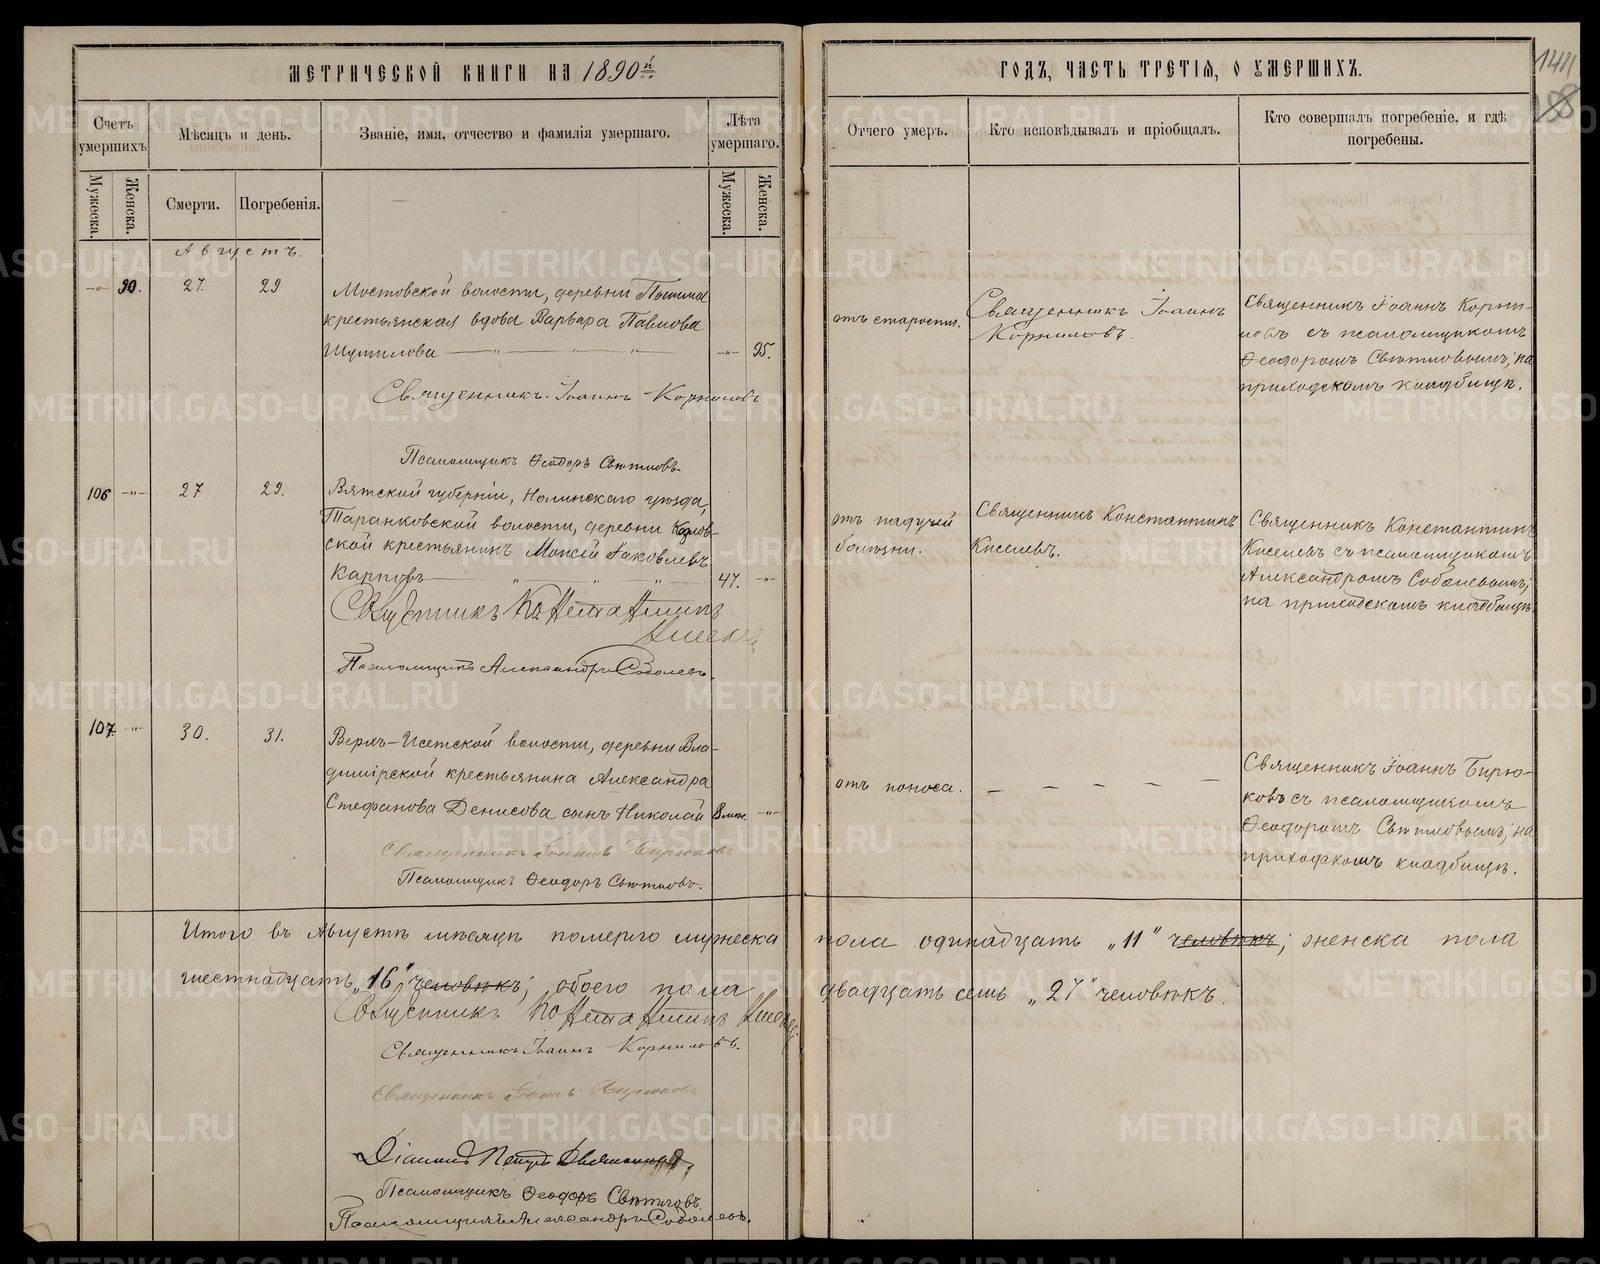 МЕТРИЧЕСКОЙ КНИГИ НА 1890й
ГОДЪ, ЧАСТЬ ТРЕТІЯ, О УМЕРШИХЪ.
Счетъ умершихъ
Мѣсяцъ и день.
Званіе, имя, отчество и фамилія умершаго.
Лѣта умершаго.
Отчего умеръ.
Кто исповѣдывалъ и пріобщалъ.
Кто совершалъ погребеніе, и гдѣ
погребены.
Мужеска.
Женска.
Смерти.
Погребенія.
Мужеска.
Женска.
Августъ.
—"— 90. 27. 29
Мостовской волости, деревни Пышма
крестьянская вдова Варвара Павлова
Шутилова — " — " — " — —"— 95.
Священникъ Іоаннъ Корниловъ
Псаломщикъ Ѳеодоръ Свѣтловъ
отъ старости.
Священникъ Іоаннъ
Корниловъ.
Священникъ Іоаннъ Корни-
ловъ съ псаломщикомъ
Ѳеодоромъ Свѣтловымъ; на
приходскомъ кладбищѣ.
106 —"— 27 29.
Вятской губерніи, Нолинскаго уѣзда,
Таранковской волости, деревни
ской крестьянинъ Моисей Іаковлевъ
Карповъ — " — " — " — 47. —"—
Священникъ Константинъ
Киселевъ
Псаломщикъ Александръ Соболевъ.
отъ падучей
болѣзни.
Священникъ Константинъ
Киселевъ.
Священникъ Константинъ
Киселевъ съ псаломщикомъ
Александромъ Соболевымъ;
на приходскомъ кладбищѣ.
107. —"— 30. 31.
Верхъ-Исетской волости, деревни Вла-
димірской крестьянина Александра
Стефанова Денисова сынъ Николай 8 мѣс. —"—
Священникъ Іоаннъ Бирюковъ
Псаломщикъ Ѳеодоръ Свѣтловъ.
отъ поноса.
— — — — —
Священникъ Іоаннъ Бирю-
ковъ съ псаломщикомъ
Ѳеодоромъ Свѣтловымъ; на
приходскомъ кладбищѣ.
Итого въ Августѣ мѣсяцѣ померло мужеска пола одинадцать „11" человѣкъ; женска пола
шестнадцать „16" человѣкъ; обоего пола двадцать семь „27" человѣкъ.
Священникъ Константинъ Киселевъ
Священникъ Іоаннъ Корниловъ.
Священникъ Іоаннъ Бирюковъ
Діаконъ Петръ
Псаломщикъ Ѳеодоръ Свѣтловъ.
Псаломщикъ Александръ Соболевъ.
METRIKI.GASO-URAL.RU